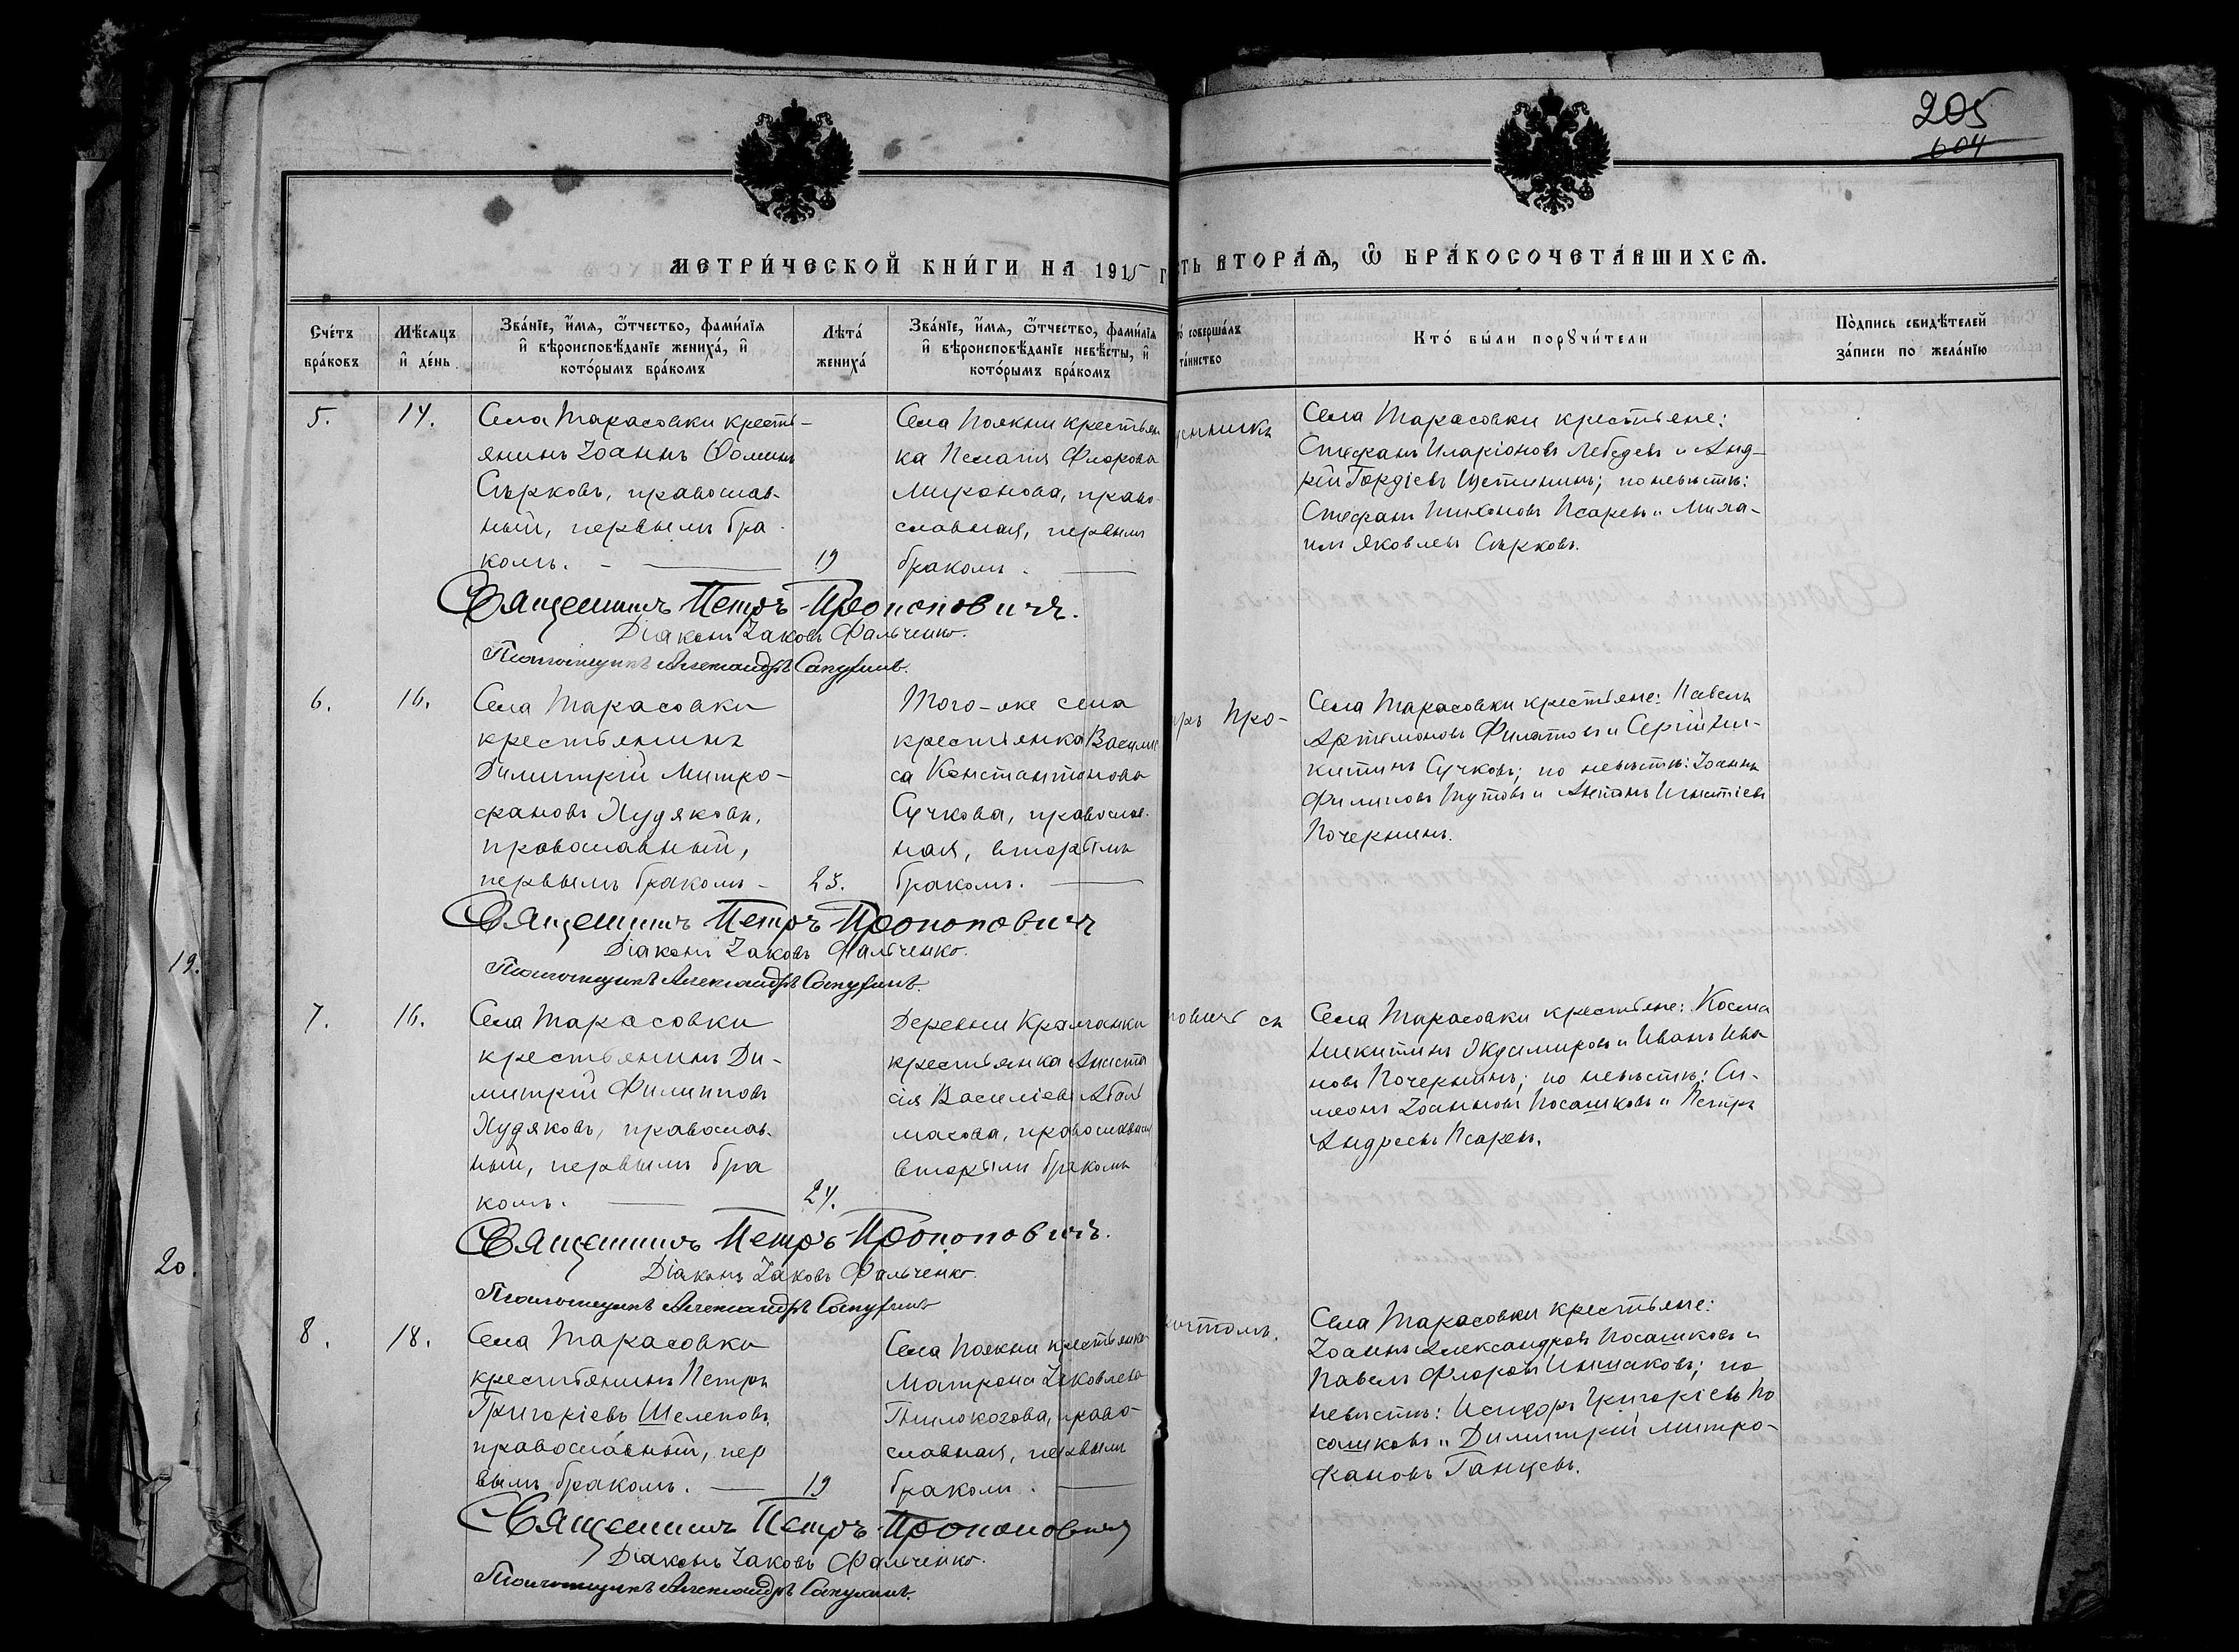 205
604
МЕТРИ́ЧЕСКОЙ КНИ́ГИ НА 1915 Г
СТЬ ВТОРА́Ѧ, Ѿ БРА́КОСОЧЕТА́ВШИХСѦ.
Сче́тъ бра́ковъ
Мѣ́сѧцъ и҆ де́нь
Зва́нїе, и҆́мѧ, ѻ҆́тчество, фами́лїѧ и҆ вѣроисповѣ́данїе жениха́, и҆ кото́рымъ бра́комъ
Лѣта́ жениха́
Зва́нїе, и҆́мѧ, ѻ҆́тчество, фами́лїѧ и҆ вѣроисповѣ́данїе невѣ́сты, и҆ кото́рымъ бра́комъ
то́ соверша́лъ та́инство
Кто́ бы́ли порꙋчи́тели
По́дпись свидѣ́телей за́писи по жела́нїю
5.
14.
Села Тарасовки кресть-
янинъ Іоаннъ Ѳоминъ
Сѣрковъ, православ-
ный, первымъ бра-
комъ.
19
Села Поякни крестьян
ка Пелагія Флорова
Миронова, право-
славная, первымъ
бракомъ.
Села Тарасовки крестьяне:
Стефанъ Иларіоновъ Лебедевъ и Анд-
рей Гордіевъ Щетининъ; по невѣстѣ:
Стефанъ Тихоновъ Псаревъ и Миха-
илъ Яковлевъ Сѣрковъ.
Священникъ Петръ Прокоповичъ.
Діаконъ Іаковъ Фальченко.
Псаломщикъ Александръ
6.
16.
Села Тарасовки
крестьянинъ
Димитрій Митро-
фановъ Худяковъ,
православный,
первымъ бракомъ
23.
Того-же села
крестьянка Васили
са Константинова
Сучкова, православ-
ная, вторымъ
бракомъ.
тръ Про-
Села Тарасовки крестьяне: Павелъ
Артемоновъ Филатовъ и Сергій Ни-
китинъ Сучковъ; по невѣстѣ: Іоаннъ
Филиповъ Шутовъ и Антонъ Игнатіевъ
Почернинъ.
Священникъ Петръ Прокоповичъ
Діаконъ Іаковъ Фальченко.
Псаломщикъ Александръ
7.
16.
Села Тарасовки
крестьянинъ Ди-
митрій Филипповъ
Худяковъ, православ-
ный, первымъ бра
комъ.
24.
Деревни
крестьянка Анаста
сія Василіева Абал
макова, православная
вторымъ бракомъ
повичъ съ
Села Тарасовки крестьяне: Косма
Никитинъ и Иванъ Ива
новъ Почернинъ; по невѣстѣ: Си-
меонъ Іоанновъ Посашковъ и Петръ
Андреевъ Псаревъ.
Священникъ Петръ Прокоповичъ.
Діаконъ Іаковъ Фальченко.
Псаломщикъ Александръ
8.
18.
Села Тарасовки
крестьянинъ Петръ
Григоріевъ Шелеповъ,
православный, пер
вымъ бракомъ.
19
Села Поякни крестьянка
Матрона Іаковлева
Гнилокозова, право-
славная, первымъ
бракомъ.
Села Тарасовки крестьяне:
Іоаннъ Александровъ Посашковъ и
Павелъ Флоровъ Иншаковъ; по
невѣстѣ: Исидоръ Григоріевъ По
сашковъ и Димитрій Митро-
фановъ Ганцевъ.
Священникъ Петръ Прокоповичъ
Діаконъ Іаковъ Фальченко.
Псаломщикъ Александръ
19.
20